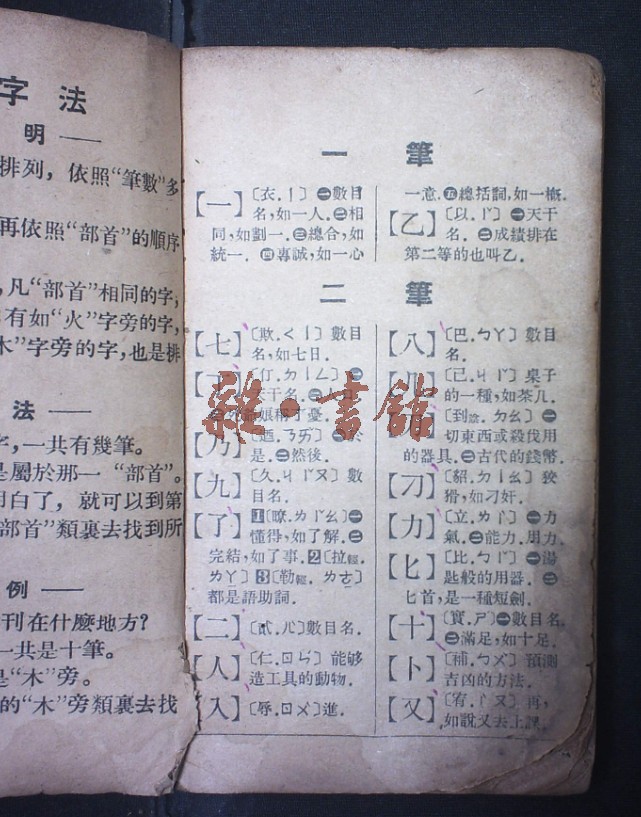 字法
明——
排列，依照“筆數”多
再依照“部首”的順序
，凡“部首”相同的字，
有如“火”字旁的字，
木”字旁的字，也是排
法——
字，一共有幾筆。
是屬於那一“部首”。
明白了，就可以到第
部首”類裏去找到所
例——
刊在什麼地方？
一共是十筆。
是“木”旁。
的“木”旁類裏去找
一 筆
【一】〔衣．ㄧ〕㊀數目
名，如一人．㊁相
同，如劃一．㊂總合，如
統一．㊃專誠，如一心
一意．㊄總括詞，如一概．
【乙】〔以．ㄧˇ〕㊀天干
名．㊁成績排在
第二等的也叫乙．
二 筆
【七】〔欺．ㄑㄧ〕數目
名，如七日．
【丁】〔仃．ㄉㄧㄥ〕㊀
天干名．
娘稱丁憂．
【乃】〔迺．ㄋㄞˇ〕㊀於
是．㊁然後．
【九】〔久．ㄐㄧㄡˇ〕數
目名．
【了】1〔瞭．ㄌㄧㄠˇ〕㊀
懂得，如了解．㊁
完結，如了事．2〔拉輕．
ㄌㄚ〕3〔勒輕．ㄌㄜ〕
都是語助詞．
【二】〔貳．ㄦˋ〕數目名．
【人】〔仁．ㄖㄣˊ〕能够
造工具的動物．
【入】〔辱．ㄖㄨˋ〕進．
【八】〔巴．ㄅㄚ〕數目
名．
【几】〔己．ㄐㄧˇ〕桌子
的一種，如茶几．
〔到陰．ㄉㄠ〕㊀
切東西或殺伐用
的器具．㊁古代的錢幣．
【刁】〔貂．ㄉㄧㄠ〕狡
猾，如刁奸．
【力】〔立．ㄌㄧˋ〕㊀力
氣．㊁能力．用力．
【匕】〔比．ㄅㄧˇ〕㊀湯
匙般的用器．㊁
匕首，是一種短劍．
【十】〔實．ㄕˊ〕㊀數目名．
㊁滿足，如十足．
【卜】〔補．ㄅㄨˇ〕預測
吉凶的方法．
【又】〔宥．ㄧㄡˋ〕再，
如說又去上課．
書舘